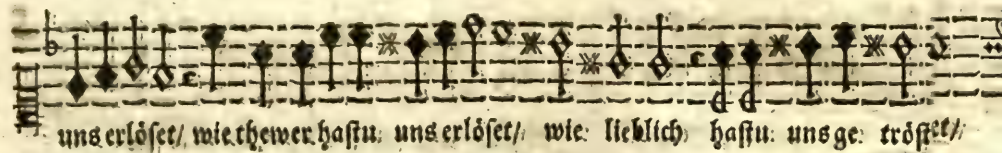 uns erlöset/ wie thewer hastu uns erlöset/ wie lieblich hastu uns getröstet/